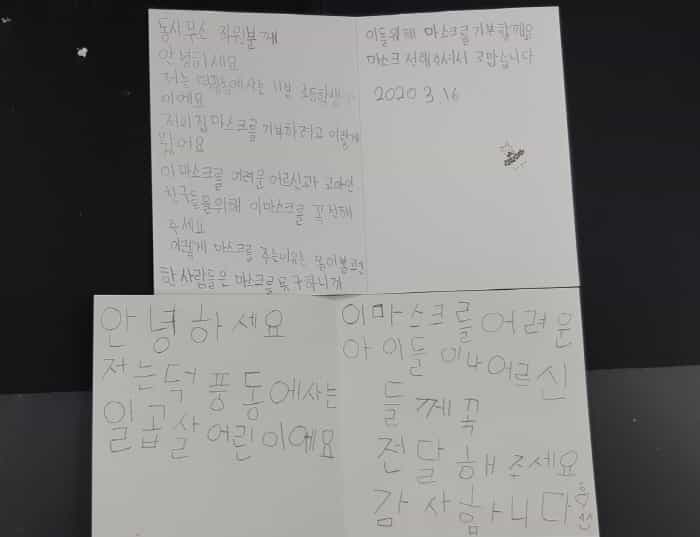 동사무소 직원분께
안녕하세요
저는 덕풍동에사는 11살 초등학생
이에요
저의집마스크를 기부하려고 이렇게
왔어요
이마스크를 어려운 어르신과 고아인
친구들을위해 이마스크를 꼭전해
주세요
이렇게 마스크를 주는이유는 몸이불편
한 사람들은 마스크를 못구하니까
이들위해 마스크를 기부할께요
마스크 전해주셔서 고맙습니다
2020 3 16
안녕하세요
저는덕풍동에사는
일곱살어린이에요
이마스크를어려운
아이들이나어르신
들께꼭
전달해주세요
감사함니다